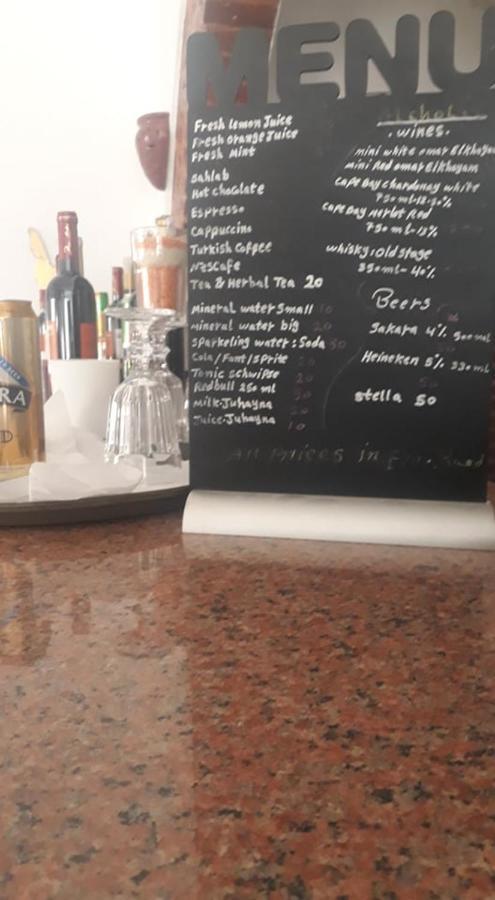 MENU
Fresh lemon Juice
Fresh orange Juice
Fresh Mint
Sahlab
Hot chocolate
Espresso
Cappuccino
Turkish Coffee
Nescafe
Tea & Herbal Tea 20
Mineral water small 10
mineral water big 20
sparkeling water: Soda 30
Cola/Fant/sprite 20
Tonic schwepse 20
Redbull 250 ml
Milk-Juhayna
Juice-Juhayna 10
.wines.
mini white omar Elkhayam
mini Red omar Elkhayam
Cape Bay chardonay white
750 ml-
Cape Bay Merlot Red
750 ml-13%
whisky: old stage
350ml- 40%
Beers
Sakara 4% 500ml
Heineken 5% 330ml
50
stella 50
All Prices in
RA